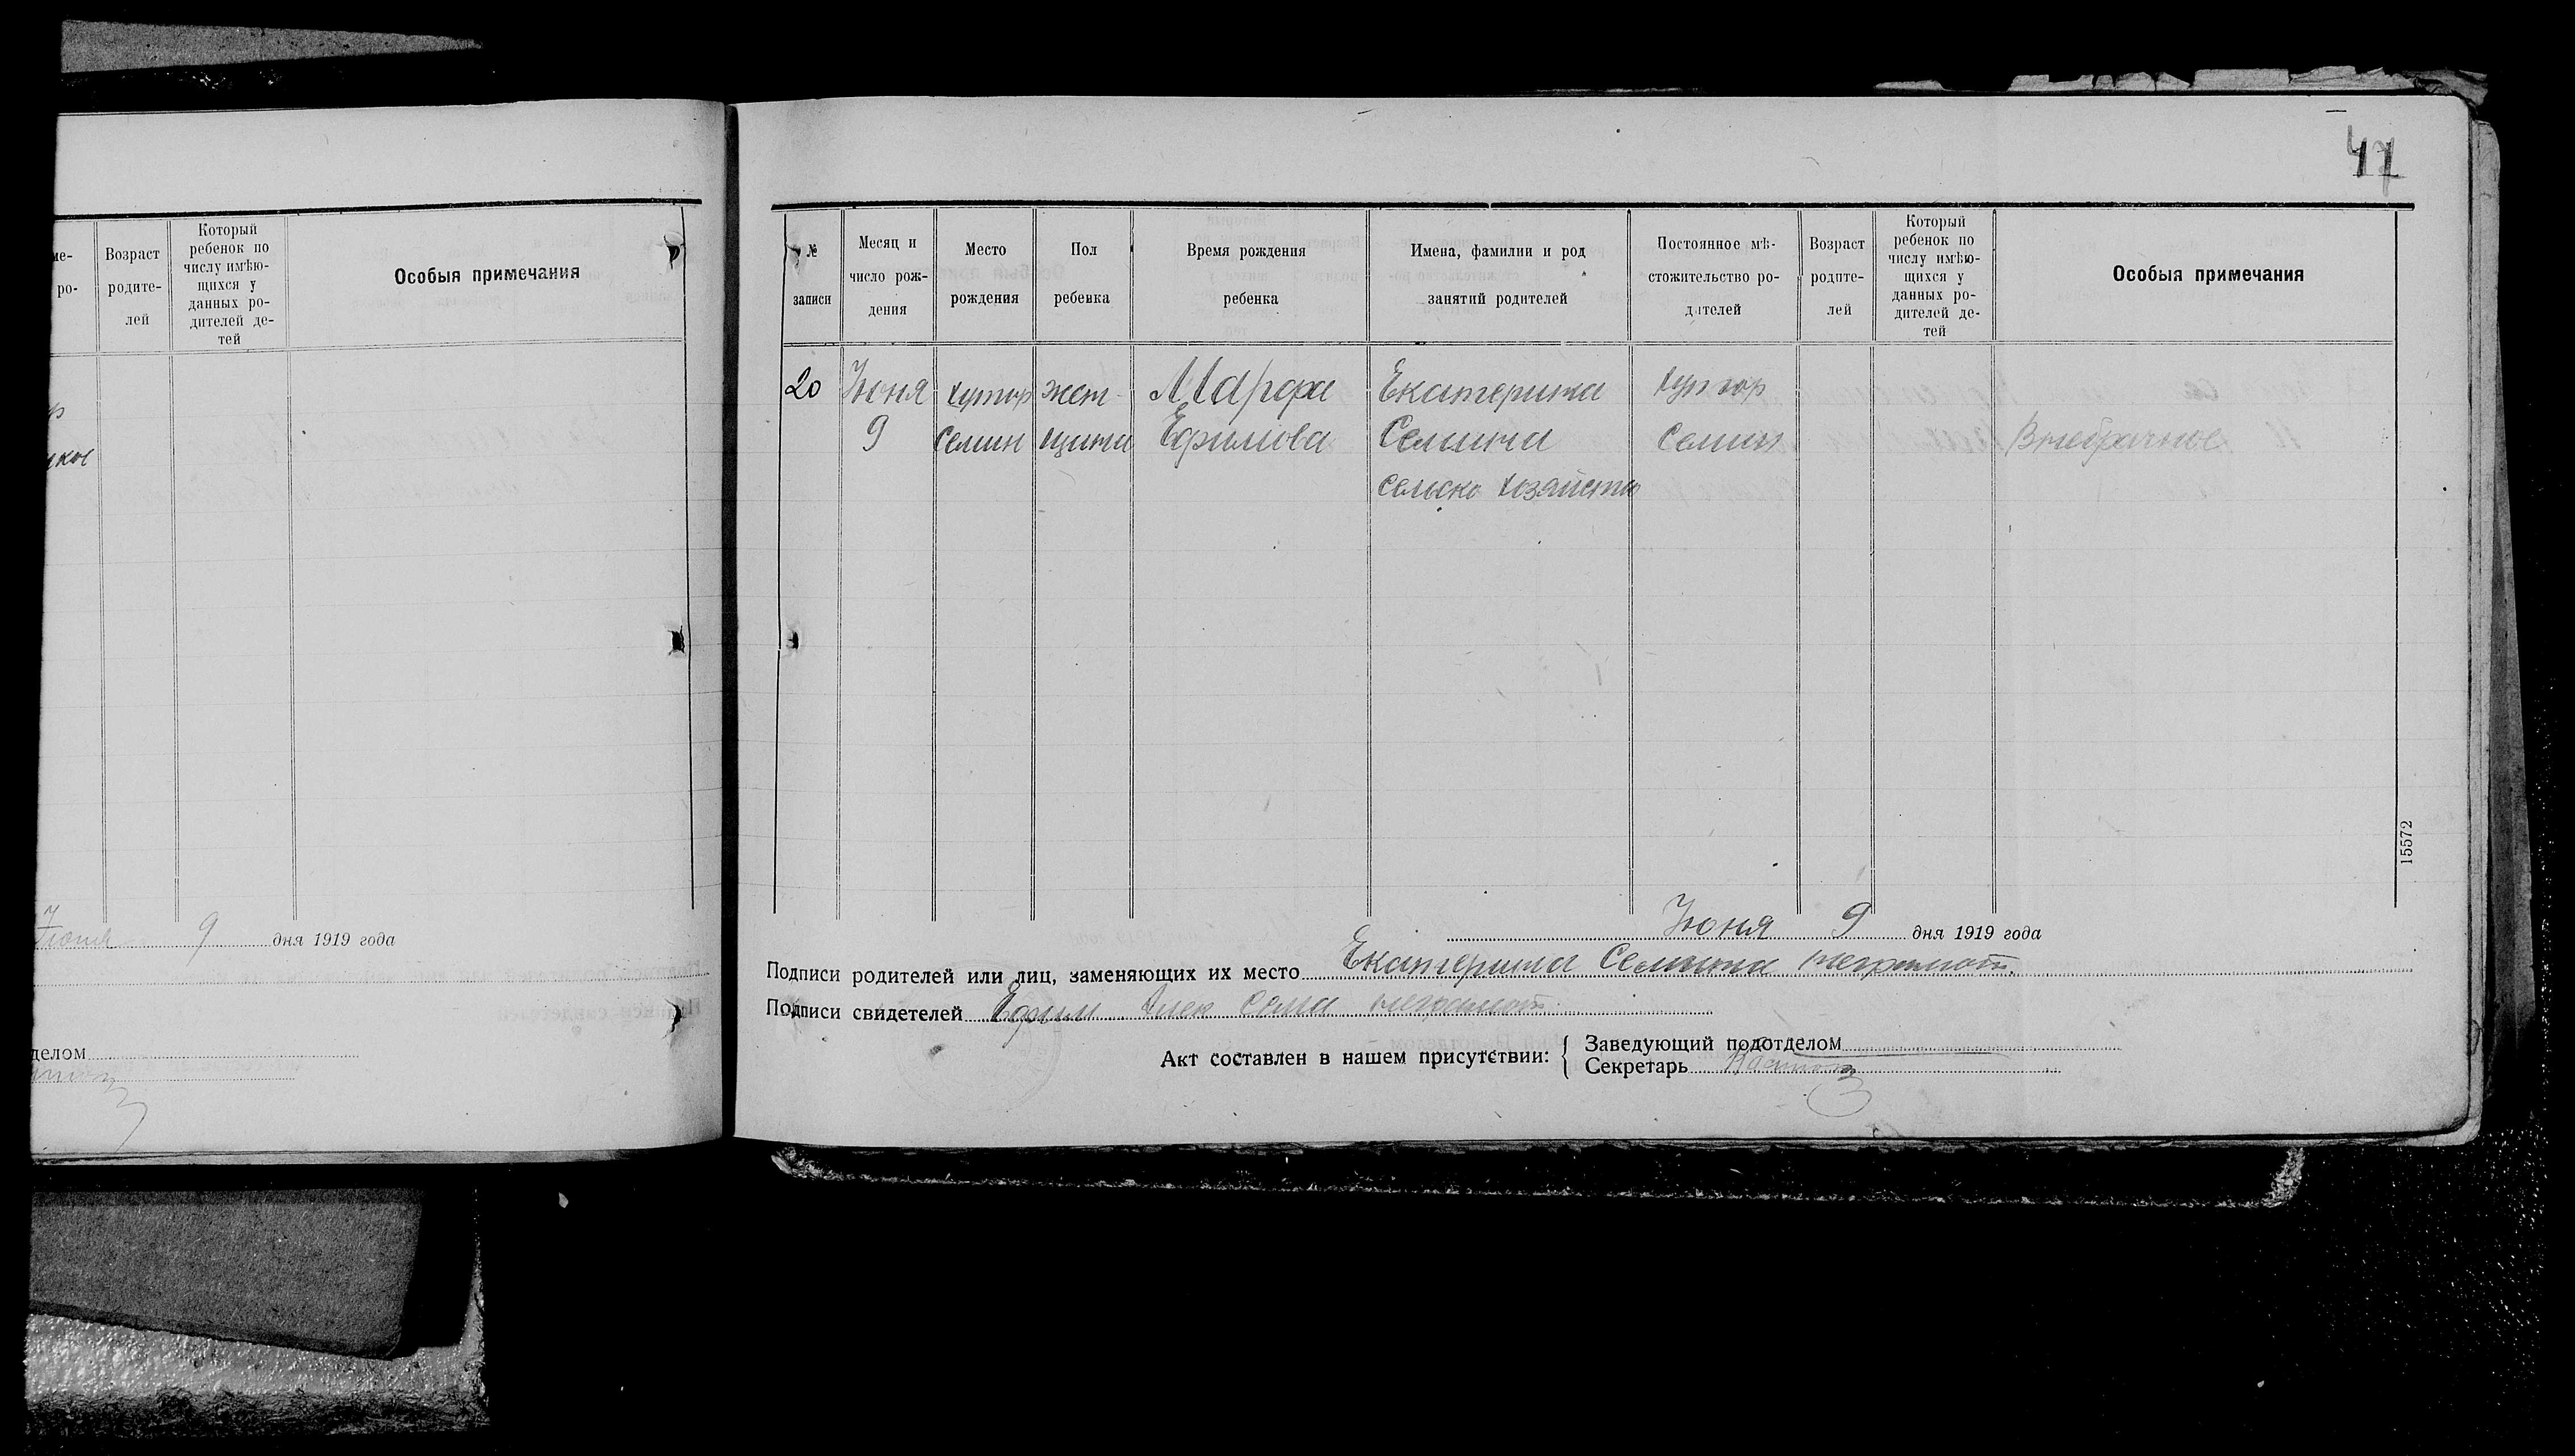 ме-
ро-
Возраст
родите-
лей
Который
ребенок по
числу имѣю-
щихся у
данных ро-
дителей де-
тей
Особыя примечания
Июня 9 дня 1919 года
делом
47
№
записи
Месяц и
число рож-
дения
Место
рождения
Пол
ребенка
Время рождения
ребенка
Имена, фамилии и род
занятий родителей
Постоянное мѣ-
стожительство ро-
дителей
Возраст
родите-
лей
Который
ребенок по
числу имѣю-
щихся у
данных ро-
дителей де-
тей
Особыя примечания
20 Июня хутор жен Марфа Екатерина хутор
9 Семин щина Ефимова Семина Семин Внебрачное
сельско хозяйство
15572
Июня 9 дня 1919 года
Подписи родителей или лиц, заменяющих их место Екатерина Семина неграмот.
Подписи свидетелей Ефим неграмот.
Акт составлен в нашем присутствии: { Заведующий подотделом
Секретарь